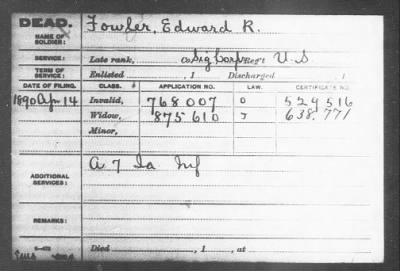 DEAD.
NAME OF SOLDIER: Fowler, Edward R.
SERVICE: Late rank, Co. Sig Corps Reg't U.S
TERM OF SERVICE: Enlisted , 1 Discharged , 1
DATE OF FILING. CLASS. APPLICATION NO. LAW. CERTIFICATE NO.
1890 Apr 14 Invalid, 768 007 529 516
Widow, 875 610 638.771
Minor,
ADDITIONAL SERVICES: A 7 Ia Inf
REMARKS:
Died , 1 , at